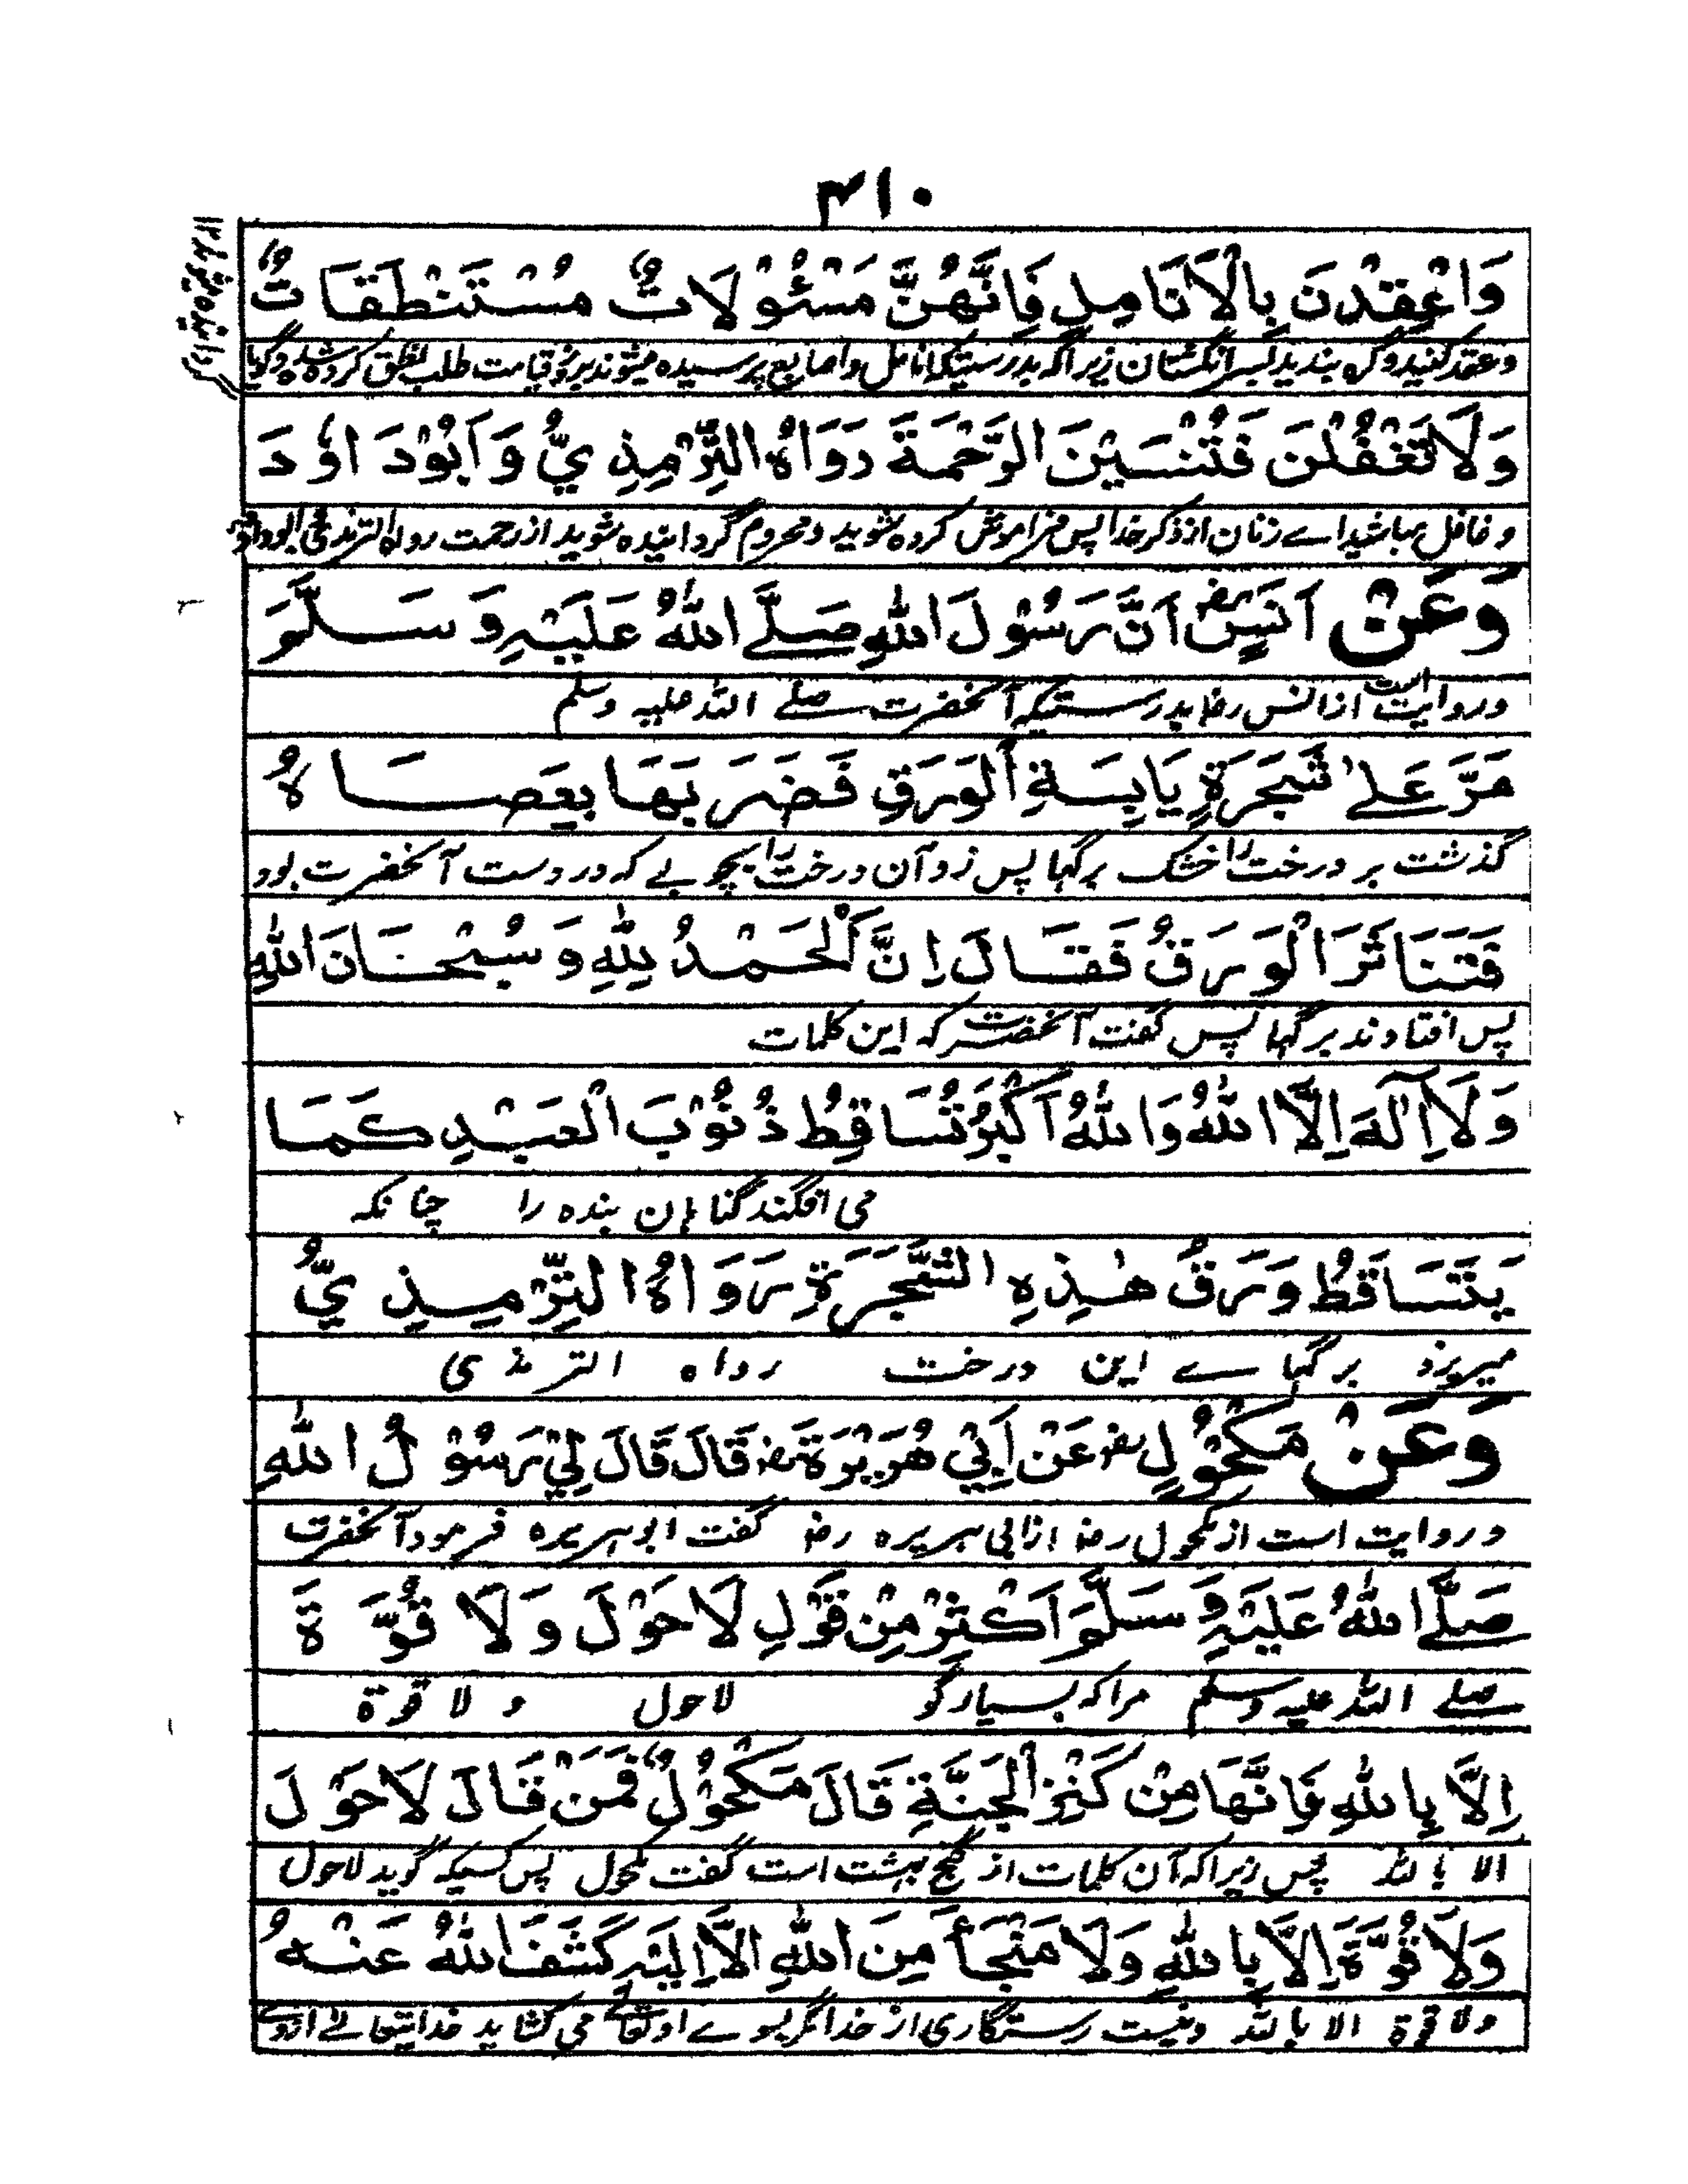 ۳۱۰
وَاعْقِدْنَ بِالْاَنَامِلِ فَاِنَّهُنَّ مَسْئُوْلَاتٌ مُسْتَنْطَقَاتٌ
وعقد کنید وگره بندید بسر انگشتان زیرا که بدرستیکه انامل واصابع پرسیده میشوند بروز قیامت طلب نطق کرده شده وگویا
گردانیده میشوند ۱۲
وَلَا تَغْفُلْنَ فَتُنْسَيْنَ الرَّحْمَةَ رَوَاهُ التِّرْمِذِيُّ وَاَبُوْدَاوٗدَ
وغافل مباشید اے زنان از ذکر خدا پس فراموش کرده شوید ومحروم گردانیده شوید از رحمت رواه الترمذی وابوداود
وَعَنْ اَنَسٍ رض اَنَّ رَسُوْلَ اللهِ صَلَّے اللهُ عَلَيْهِ وَسَلَّمَ
وروایت است از انس رض بدرستیکه آنحضرت صلے الله علیه وسلم
مَرَّ عَلٰى شَجَرَةٍ يَابِسَةِ الْوَرَقِ فَضَرَبَهَا بِعَصَاهُ
گذشت بر درخت را خشک برگها پس زد آن درخت را بچوبے که در دست آنحضرت بود
فَتَنَاثَرَ الْوَرَقُ فَقَالَ اِنَّ الْحَمْدُ لِلّٰهِ وَسُبْحَانَ اللهِ
پس افتادند برگها پس گفت آنحضرت که این کلمات
وَلَا اِلٰهَ اِلَّا اللهُ وَاللهُ اَكْبَرُ تُسَاقِطُ ذُنُوْبَ الْعَبْدِ كَمَا
می افگند گناهان بنده را چنانکه
يَتَسَاقَطُ وَرَقُ هٰذِهِ الشَّجَرَةِ رَوَاهُ التِّرْمِذِيُّ
میریزد برگهاے این درخت رواه الترمذی
وَعَنْ مَكْحُوْلٍ رض عَنْ اَبِيْ هُرَيْرَةَ رض قَالَ قَالَ لِيْ رَسُوْلُ اللهِ
وروایت است از مکحول رض از ابی هریره رض گفت ابوهریره فرمود آنحضرت
صَلَّے اللهُ عَلَيْهِ وَسَلَّمَ اَكْثِرْ مِنْ قَوْلِ لَا حَوْلَ وَلَا قُوَّةَ
صلے الله علیه وسلم مرا که بسیار گو لاحول و لا قوة
اِلَّا بِاللهِ فَاِنَّهَا مِنْ كَنْزِ الْجَنَّةِ قَالَ مَكْحُوْلٌ فَمَنْ قَالَ لَا حَوْلَ
الا بالله پس زیرا که آن کلمات از گنج بهشت است گفت مکحول پس کسیکه گوید لاحول
وَلَا قُوَّةَ اِلَّا بِاللهِ وَلَا مَنْجَأَ مِنَ اللهِ اِلَّا اِلَيْهِ كَشَفَ اللهُ عَنْهُ
ولا قوة الا بالله ونیست رستگاری از خدا مگر بسوے او تعالے می کشاید خدایتعالے ازوے